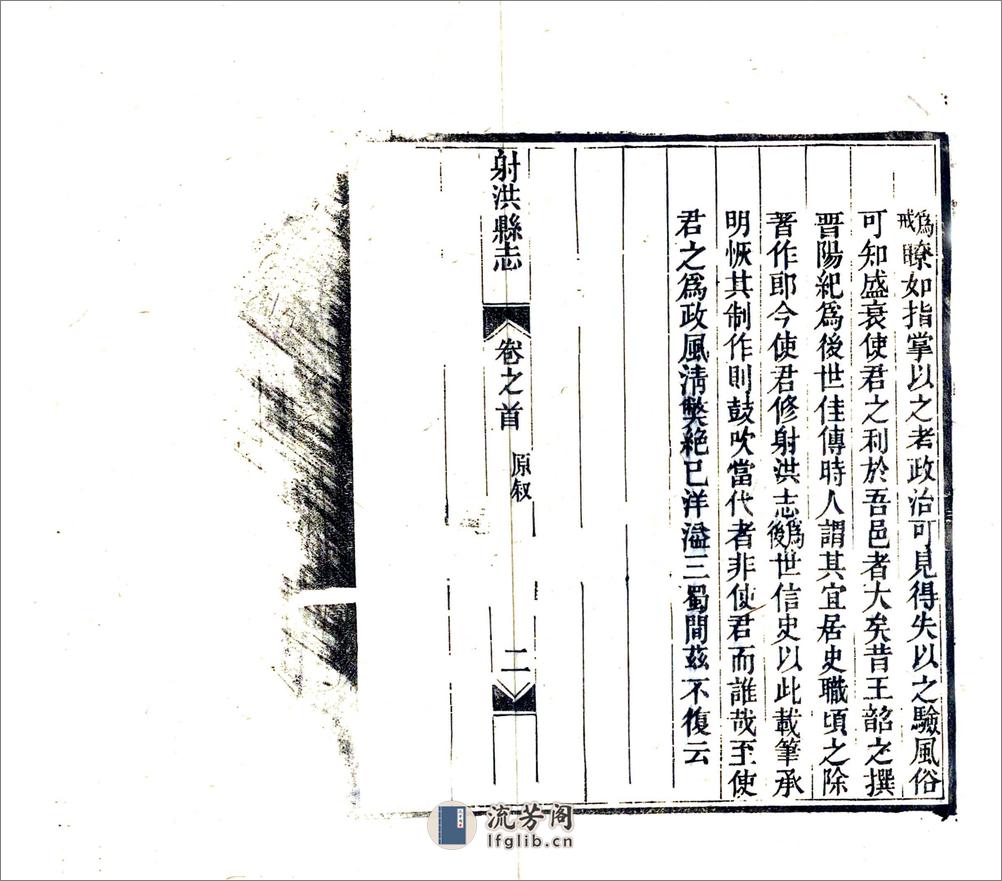 爲戒瞭如指掌以之考政治可見得失以之驗風俗
可知盛衰使君之利於吾邑者大矣昔王韶之撰
晋陽紀爲後世佳傳時人謂其宜居史職頃之除
著作郎今使君修射洪志爲後世信史以此載筆承
明恢其制作則鼓吹當代者非使君而誰哉至使
君之爲政風淸獘絶已洋溢三蜀間茲不復云
射洪縣志
卷之首
原叙
二
流芳阁
lfglib.cn